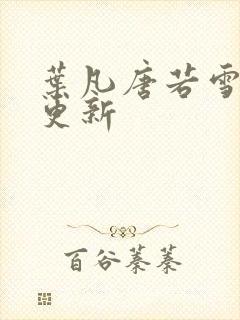 葉凡唐若雪
更新
百谷蓁蓁